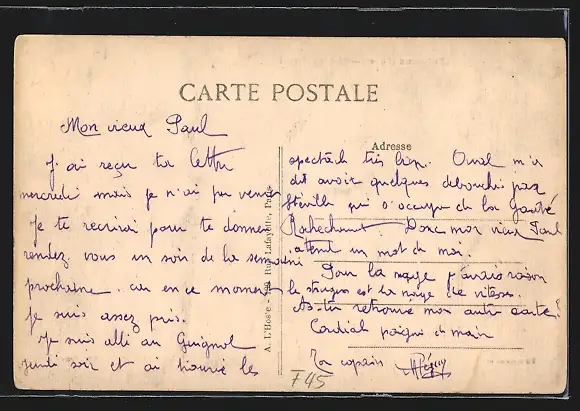 CARTE POSTALE
Mon vieux Paul
J'ai reçu ta lettre
mercredi mais je n'ai pu venir
Je te recrirai pour te donner
rendez vous un soir de la semaine
prochaine. car en ce moment
je suis assez pris.
Je suis allé au Guignol
jeudi soir et ai trouvé les
A. L'Hoste - Rue Lafayette, Paris
Adresse
spectacle très bien. On m'a
dit avoir quelques débouchés par
qui s'occupe de la Gaîté
Rochechouart. Donc mon vieux Paul
attend un mot de moi.
Pour la nage j'avais raison
le est la nage de vitesse.
As-tu retrouvé mon autre carte?
Cordiale poignée de main
Ton copain
F45